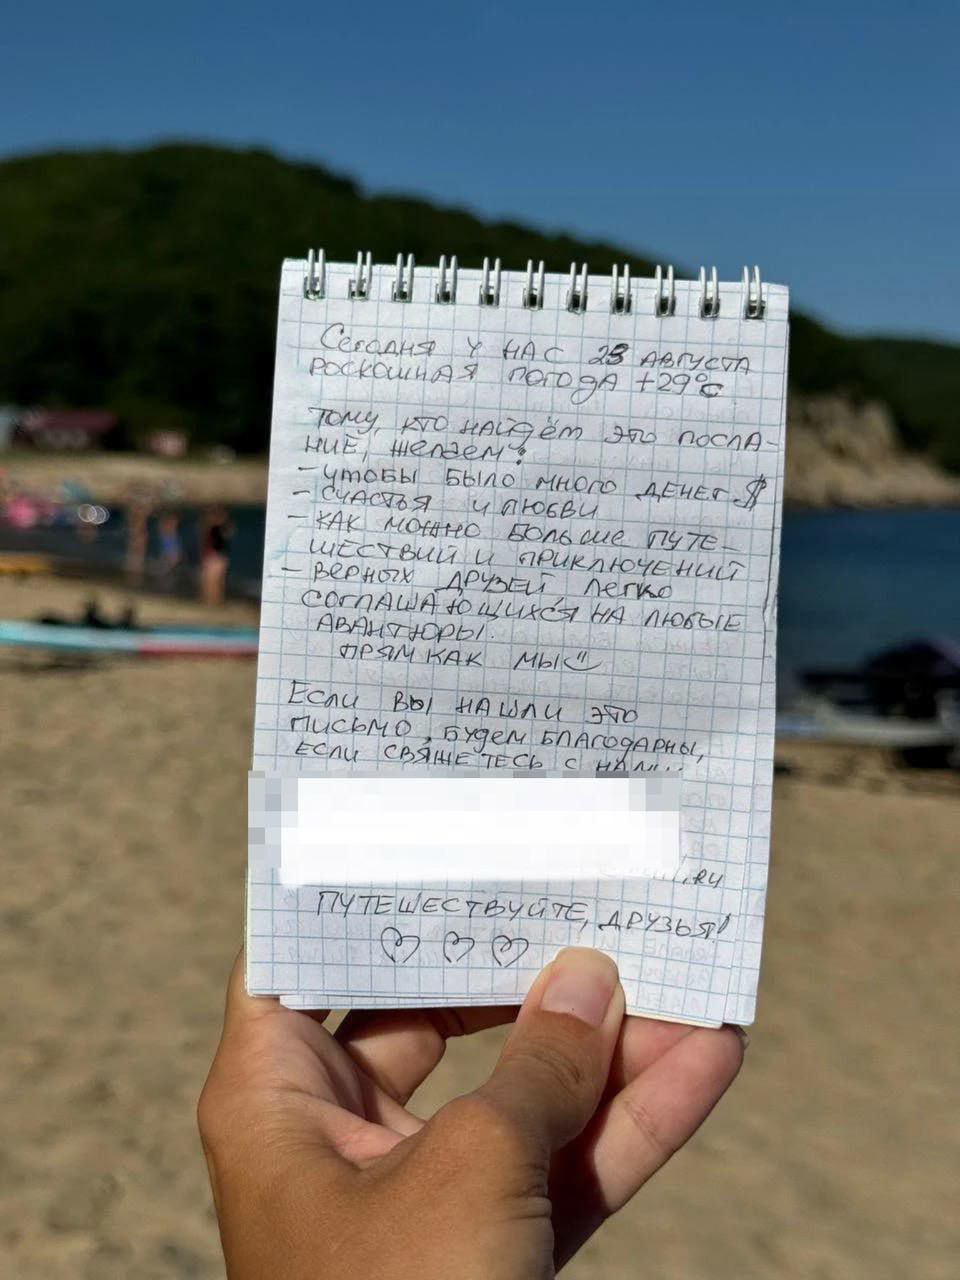 Сегодня у нас 23 августа
роскошная погода +29°С
Тому, кто найдём это посла-
ние, желаем:
- чтобы было много денег $
- счастья и любви
- как можно больше путе-
шествий и приключений
- верных друзей легко
соглашающихся на любые
авантюры.
прям как мы
Если вы нашли это
письмо, будем благодарны,
если свяжетесь с нами
.ru
Путешествуйте, друзья!